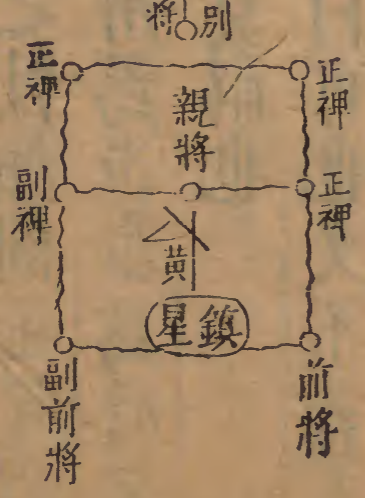 別將
正裨
正裨
親將
正裨
副裨
黃
鎮星
前將
副前將